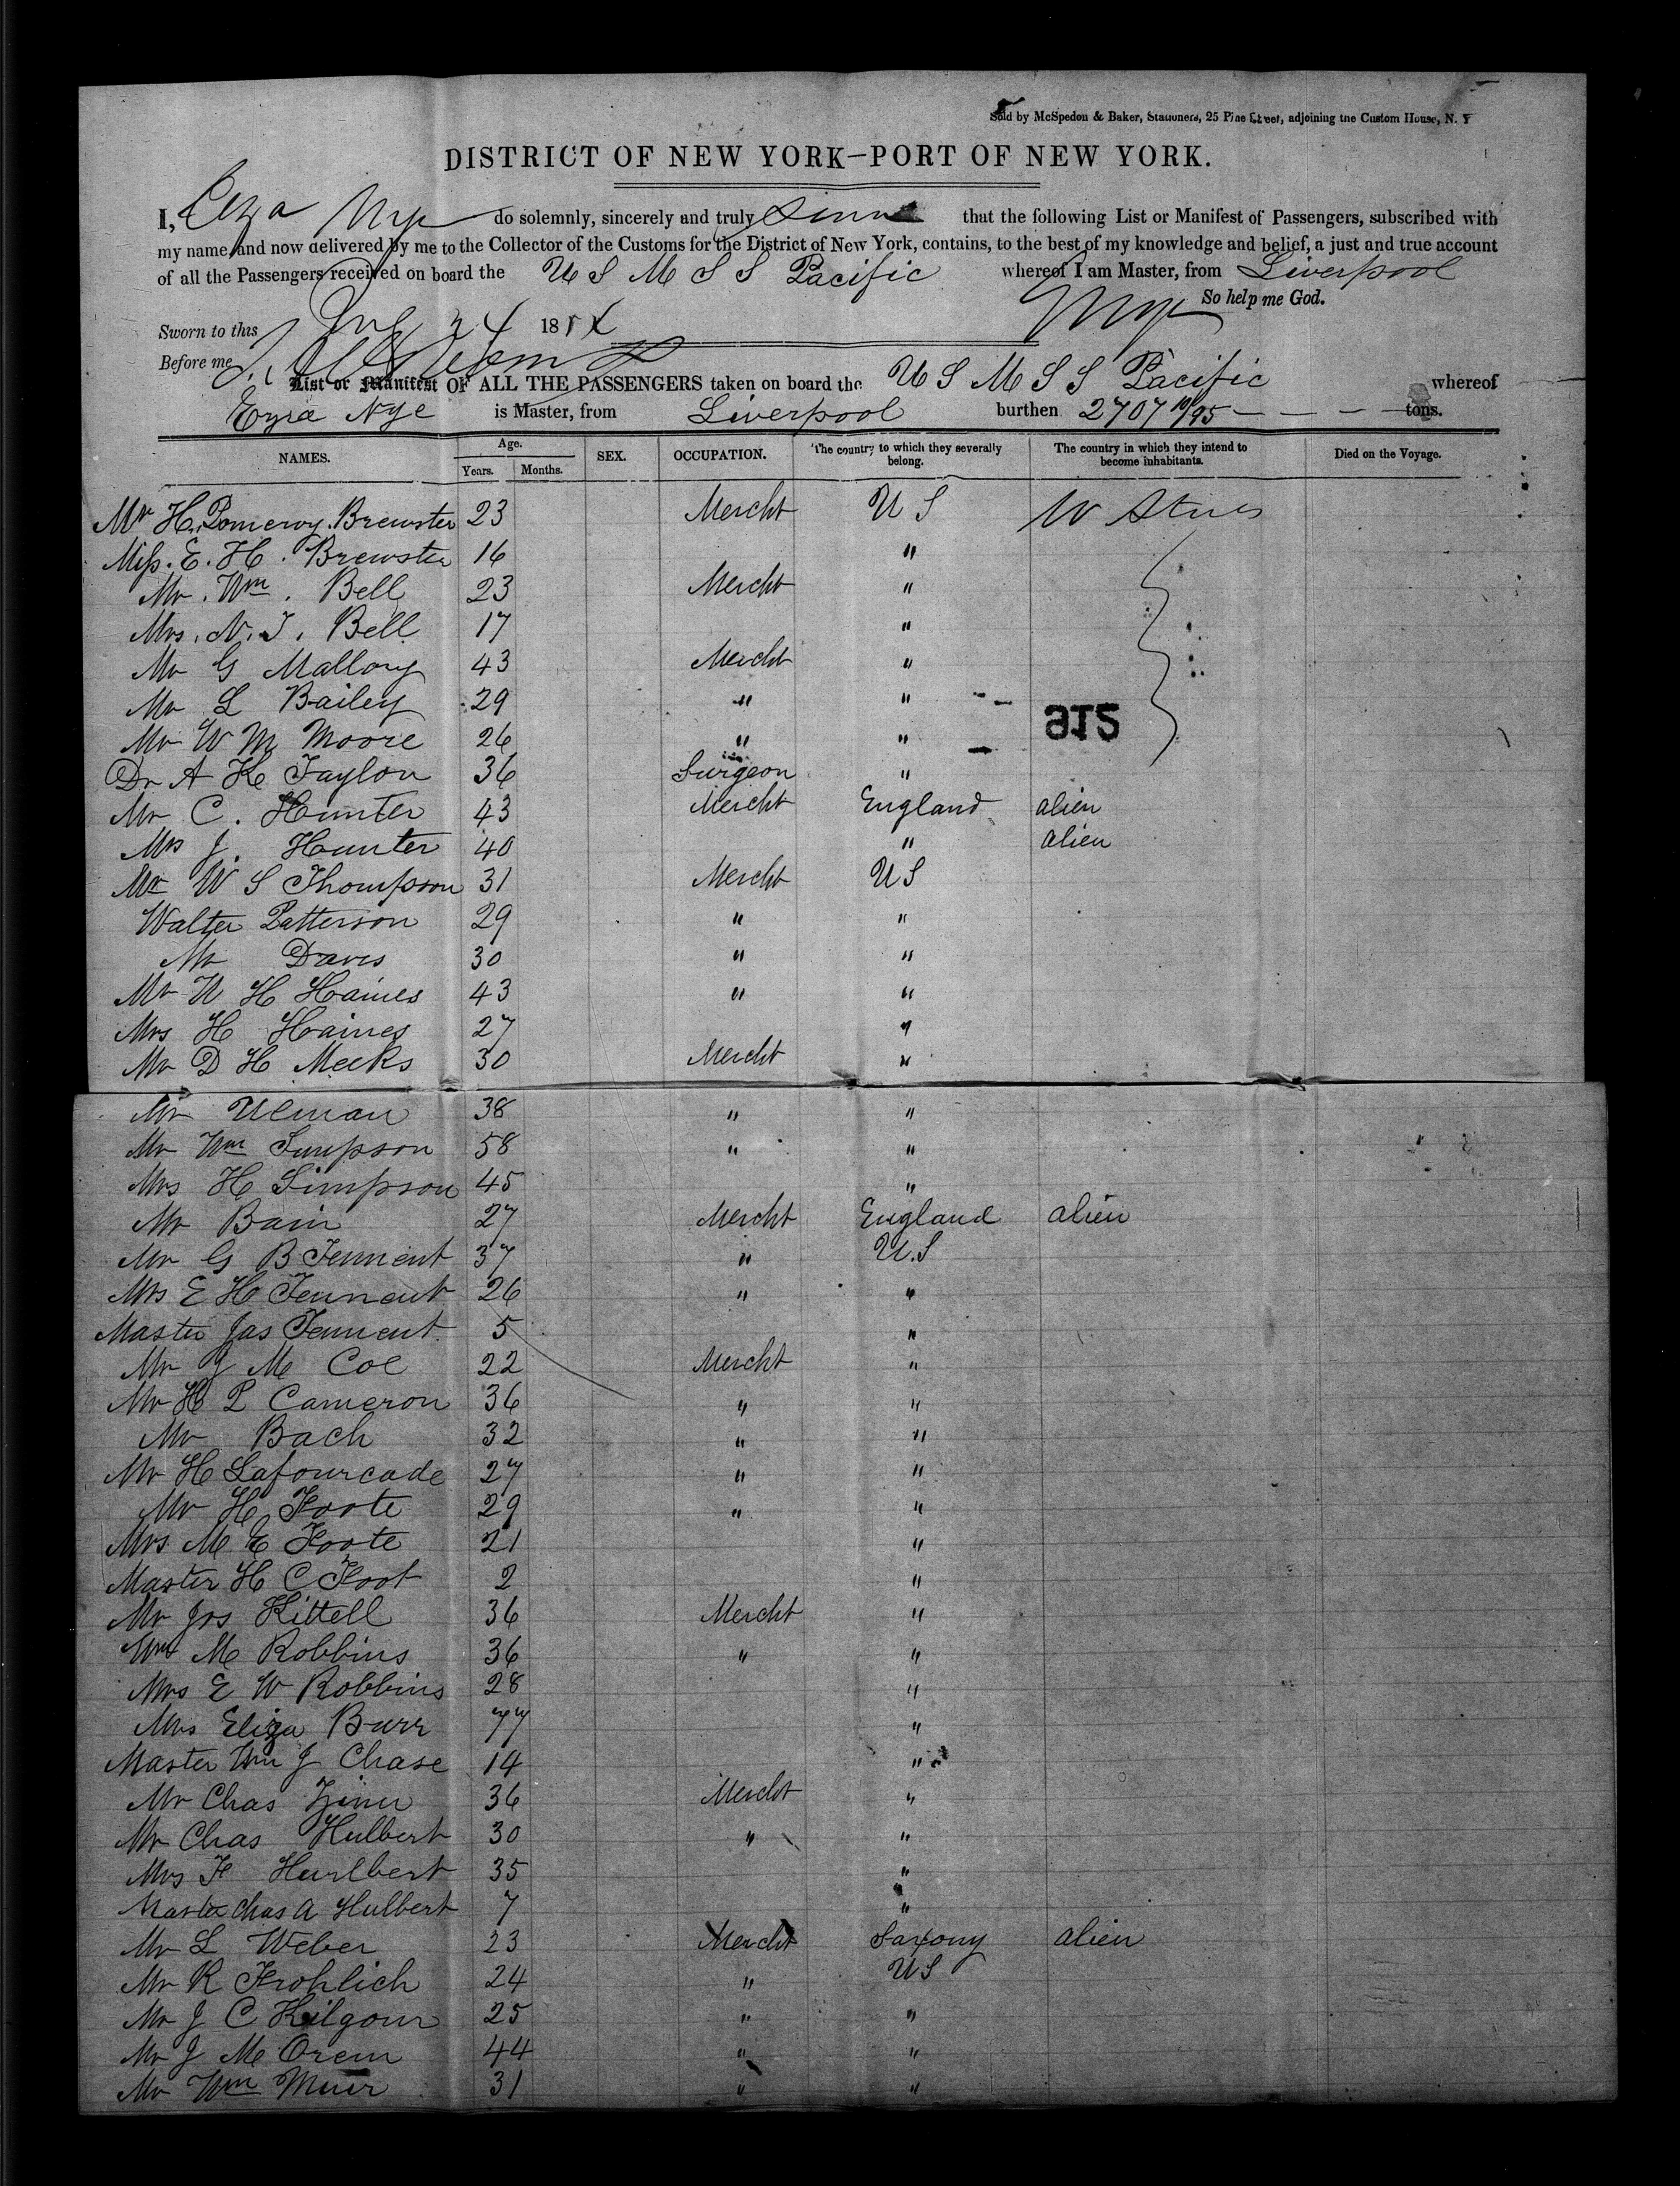 Sold by McSpedon & Baker, Stationers, 25 Pine Street, adjoining the Custom House, N. Y
DISTRICT OF NEW YORK—PORT OF NEW YORK.
I, Ezra Nye do solemnly, sincerely and truly that the following List or Manifest of Passengers, subscribed with
my name, and now delivered by me to the Collector of the Customs for the District of New York, contains, to the best of my knowledge and belief, a just and true account
of all the Passengers received on board the U S M S S Pacific whereof I am Master, from Liverpool
So help me God.
Nye
Sworn to this 24 18
Before me
List or Manifest OF ALL THE PASSENGERS taken on board the U S M S S Pacific whereof
Ezra Nye is Master, from Liverpool burthen 2707 10/95 tons.
NAMES. Age. Years. Months. SEX. OCCUPATION. The country to which they severally belong. The country in which they intend to become inhabitants. Died on the Voyage.
Mr H. Pomeroy Brewster 23 Mercht U S
Miss. E. H. Brewster 16 "
Mr. Wm. Bell 23 Mercht "
Mrs. N. J. Bell 17 "
Mr G Mallory 43 Mercht "
Mr L Bailey 29 " "
Mr W M Moore 26 " "
Dr A K Taylor 36 Surgeon "
Mr C. Hunter 43 Mercht England alien
Mrs J. Hunter 40 " alien
Mr W S Thompson 31 Mercht U S
Walter Patterson 29 " "
Mr Davis 30 " "
Mr W H Haines 43 " "
Mrs H Haines 27 "
Mr D H Meeks 30 Mercht "
Mr Ulman 38 " "
Mr Wm Simpson 58 " "
Mrs H Simpson 45 "
Mr Bain 27 Mercht England alien
Mr G B Tennent 37 " U.S
Mrs E H Tennent 26 " "
Master Jas Tennent 5 "
Mr J M Coe 22 Mercht "
Mr H P Cameron 36 " "
Mr Bach 32 " "
Mr H Lafourcade 27 " "
Mr H Foote 29 " "
Mrs M E Foote 21 "
Master H C Foot 2 "
Mr Jos Kittell 36 Mercht "
M Robbins 36 " "
Mrs E W Robbins 28 "
Mrs Eliza Burr 77 "
Master Wm J Chase 14 "
Mr Chas 36 Mercht "
Mr Chas Hulbert 30 " "
Mrs F Hurlbert 35 "
Master Chas A Hulbert 7 "
Mr L Weber 23 Mercht Saxony alien
Mr R Frohlich 24 " U S
Mr J C Kilgour 25 " "
Mr J M Orem 44 " "
Mr Wm Muir 31 " "